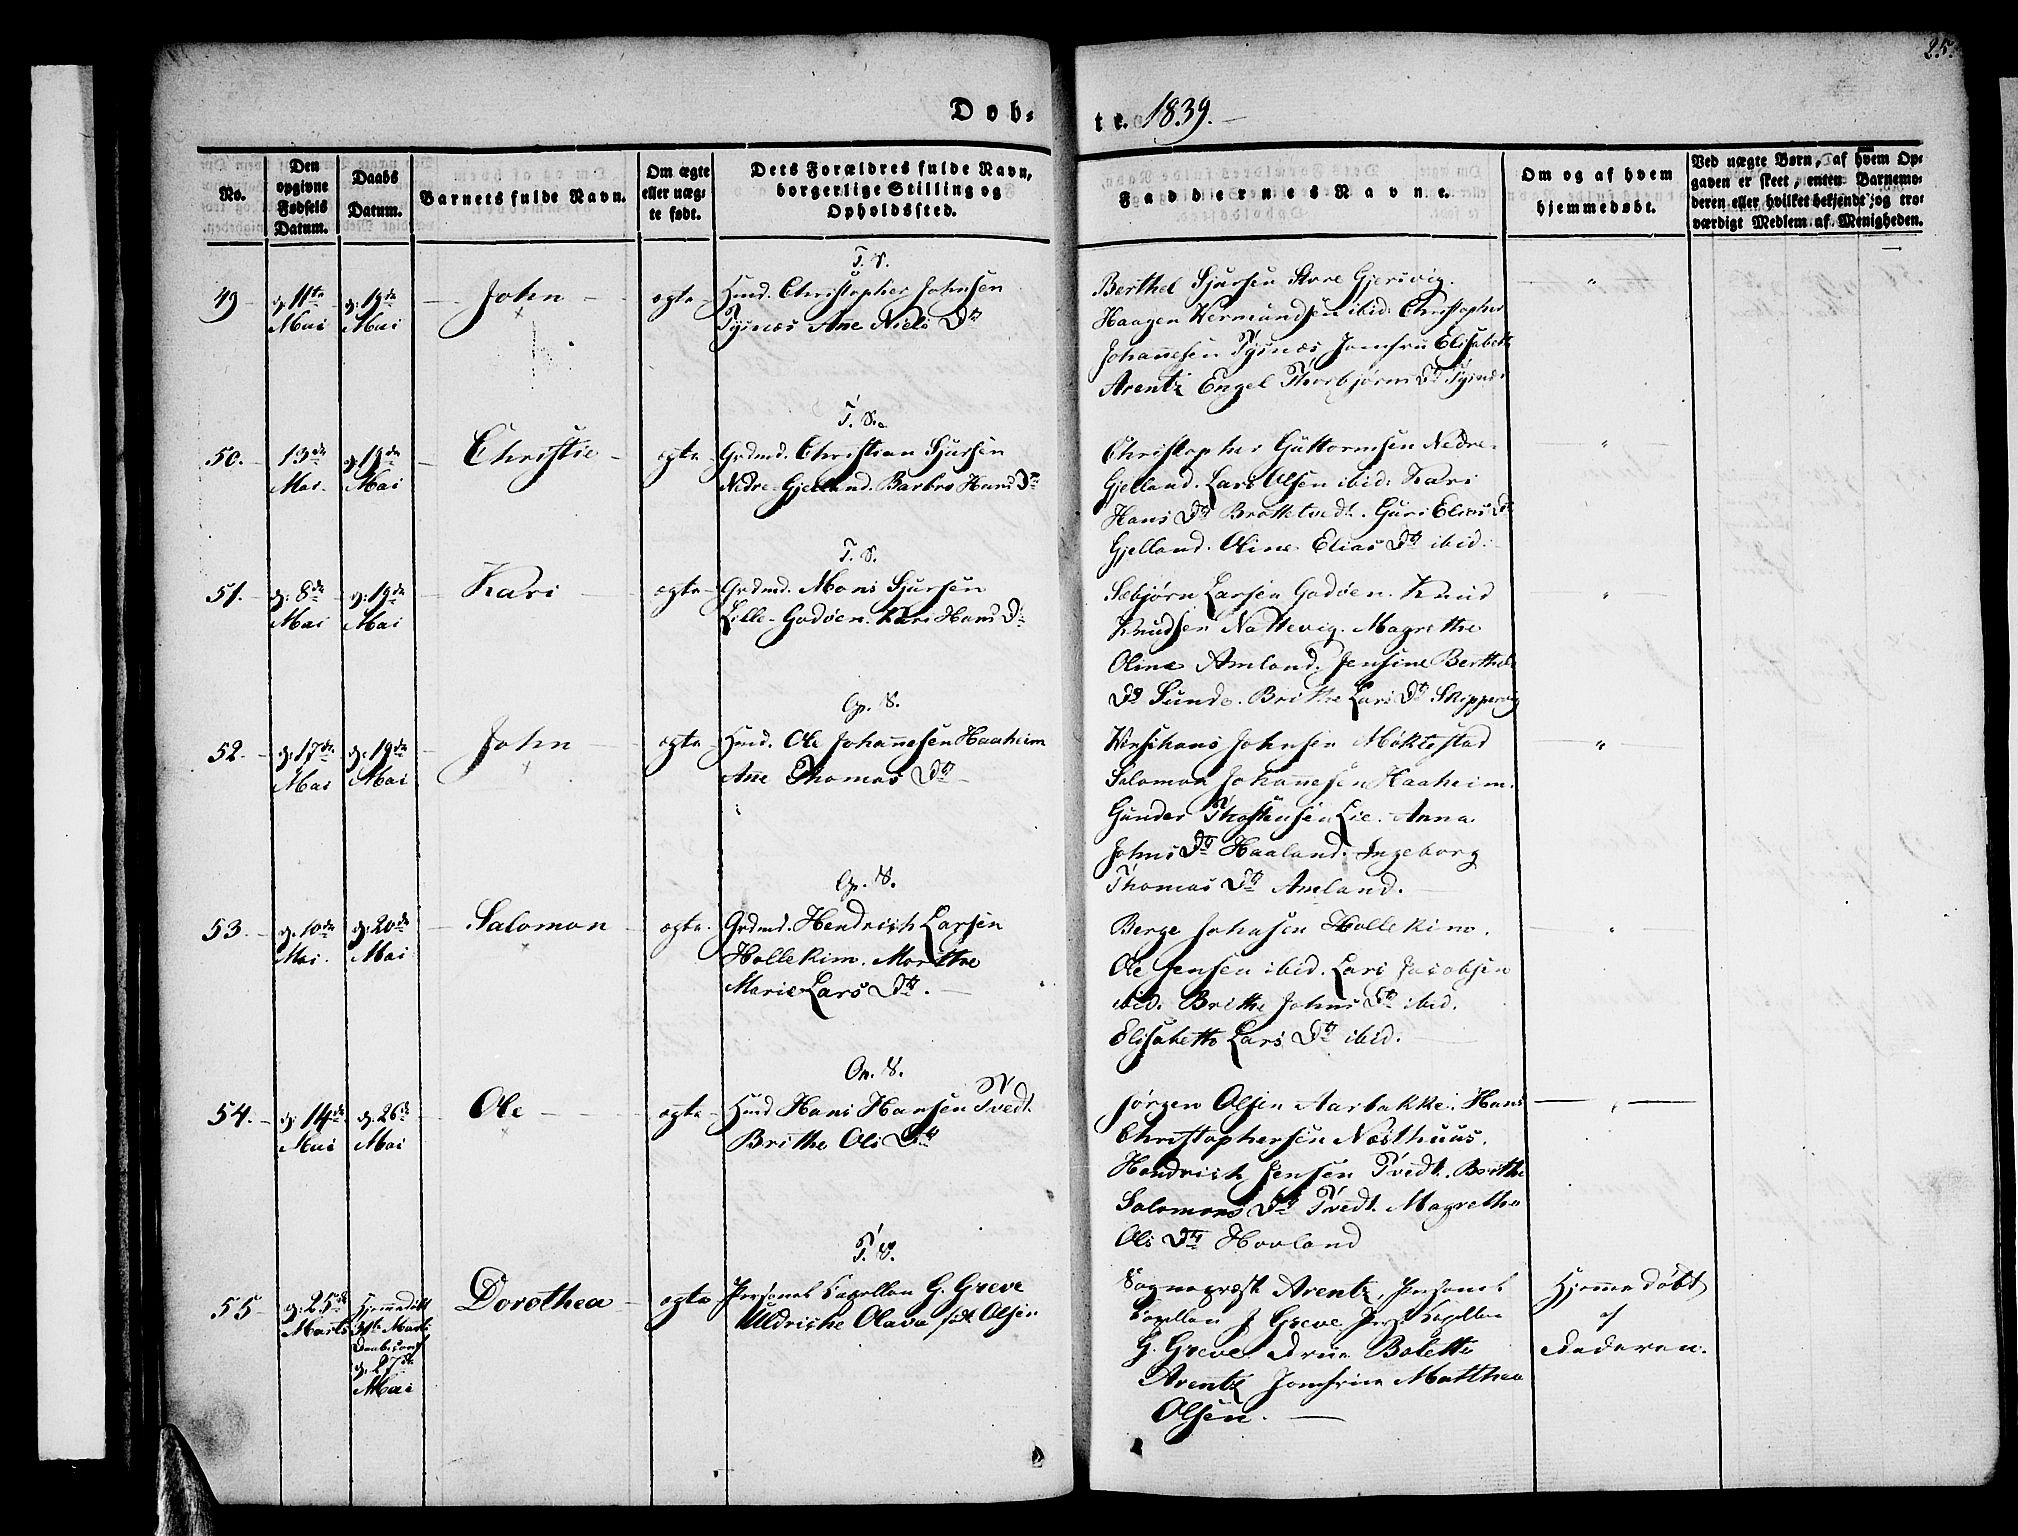 25.
Døb-
te. 1839.
No.
Den opgivne Fødsels Datum.
Daabs Datum.
Barnets fulde Navn.
Om ægte eller uæg-te født.
Dets Forældres fulde Navn, borgerlige Stilling og Opholdssted.
Faddernes Navne.
Om og af hvem hjemmedøbt.
Ved uægte Børn, af hvem Op-gaven er skeet, enten Barnemo-deren eller hvilket bekjendt og tro-værdigt Medlem af Menigheden.
T. S.
49 d: 11te Mai d: 19de Mai John ægte Huusmd. Christopher Johnsen
Tysnæs Ane Niels Dtr
Berthel Sjursen Store Gjersvig.
Haagen Vermundsen ibid: Christopher
Johannesen Tysnæs Jomfru Elisabeth
Arentz Engel Thorbjørns Dtr Tysnæs
T. S.
50. 13de Mai. d: 19de Mai Christie ægte Grdmd. Christian Sjursen
Nedre-Gjelland. Barbro Hans Dtr
Christopher Guttormsen Nedre-
Gjelland. Lars Olsen ibid: Kari
Hans Dtr Brattetvedt. Guri Elias Dtr
Gjelland. Oline Elias Dtr ibid:
T. S.
51. d: 8de Mai d: 19de Mai Kari ægte Grdmd. Mons Sjursen
Lille-Godøen. Kari Hans Dtr
Sæbjørn Larsen Godøen. Knud
Knudsen Nattevig. Magrethe
Oline Amland. Jensine Berthels
Dtr Sunde. Brithe Lars Dtr Skippervig
Op. S.
52. d: 17de Mai d: 19de Mai John ægte Huusmd. Ole Johannesen Haaheim
Ane Thomas Dtr
Johnsen Møklestad
Salomon Johannesen Haaheim.
Gunder Lie. Anna
Johns Dtr Haaland. Ingeborg
Thomas Dtr Amland.
Op. S.
53. d: 10de Mai. d: 20de Mai Salomon ægte Grdmd. Hendrich Larsen
Hollekim. Marthe
Marie Lars Dtr.
Berge Johnsen Hollekim.
Ole Jensen ibid. Lars Jacobsen
ibid: Brithe Johns Dtr ibid.
Elisabeth Lars Dtr ibid.
On. S.
54. d: 14de Mai d: 26de Mai Ole ægte Huusmd Hans Hansen Tvedt.
Brithe Ols Dtr
Jørgen Olsen Aarbakke. Hans
Christophersen Næsthuus.
Hendrich Jensen Tvedt. Brithe
Salomons Dtr Tvedt. Magrethe
Ols Dtr Hovland
T. S.
55 d: 25de Marts Hjemmedøbt 31te Marts d. 27de Mai Dorothea ægte Personel Capellan G. Greve
Uldricke Olava født Olsen
Sognepræst Arentz, Personel
Capellan J Greve Pers. Capellan
G. Greve. Frue Bolette
Arentz Jomfrue Matthea
Olsen.
Hjemmedøbt
af
Faderen.